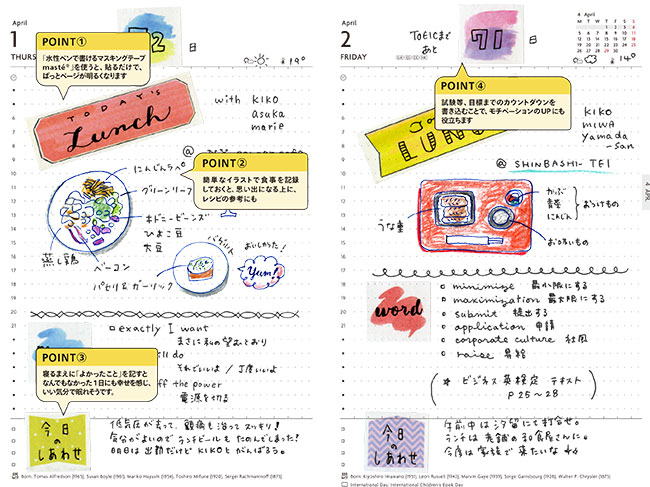 April
1
THURS
72
日
19°
POINT①
「水性ペンで書けるマスキングテープ
masté®」を使うと、貼るだけで、
ぱっとページが明るくなります
TODAY'S
Lunch
with KIKO
asaka
marie
@
POINT②
簡単なイラストで食事を記録
しておくと、思い出になる上に、
レシピの参考にも
にんじんラペ
グリーンリーフ
キドニービーンズ
ひよこ豆
大豆
蒸し鶏
ベーコン
パセリ&ガーリック
バゲット
おいしかった!
Yum!
□ exactly I want
まさに私の望むとおり
ll do
それでいいは / 丁度いいよ
off the power
電源を切る
POINT③
寝るまえに「よかったこと」を記すと
なんでもなかった1日にも幸せを感じ、
いい気分で眠れそうです。
今日
の
しあわせ
低気圧が去って、頭痛も治ってスッキリ!
気分がよいのでランチビールもたのんでしまった!
明日は出勤だけどKIKOとがんばろう。
Born: Tomas Alfredson (1965), Susan Boyle (1961), Mariko Hayashi (1954), Toshiro Mifune (1920), Sergei Rachmaninoff (1873)
April
2
FRIDAY
TOEICまで
あと
71
日
14°
4 April
M T W T F S S
1 2 3 4
5 6 7 8 9 10 11
12 13 14 15 16 17 18
19 20 21 22 23 24 25
26 27 28 29 30
POINT④
試験等、目標までのカウントダウンを
書き込むことで、モチベーションのUPにも
役立ちます
LUNCH
KIKO
MIWA
Yamada
-san
@ SHINBASHI-TEI
4 APR.
うな重
かぶ
青菜
にんじん
おつけもの
おすいもの
word
minimize 最小限にする
maximization 最大限にする
submit 提出する
application 申請
corporate culture 社風
raise 昇給
(※ ビジネス英検定 テキスト
P25~28)
今日
の
しあわせ
午前中は汐留にて打合せ。
ランチは老舗の和食屋さんに。
今度は家族で来たいな
Born: Kiyoshiro Imawano (1951), Leon Russell (1942), Marvin Gaye (1939), Serge Gainsbourg (1928), Walter P. Chrysler (1875)
International Day: International Children's Book Day